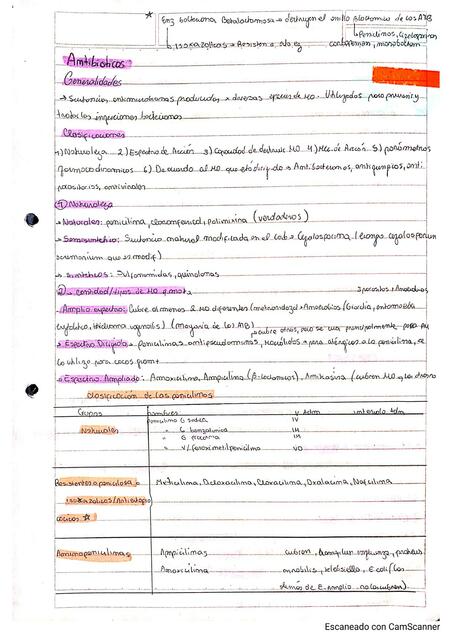 * Enz bacteriana Betalactamasa → destruyen el anillo βlactamico de los ATB
Penicilinas, Cefalosporinas
isoxazolicos → Resisten a
carbapenem, monobactam
Antibióticos
Generalidades
→ Sustancias antimicrobianas producidas x diversas especies de MO. Utilizados para prevenir y
tratar las infecciones bacterianas
Clasificaciones
1) Naturaleza 2) Espectro de Acción 3) Capacidad de destruir MO 4) Mec. de Acción 5) parámetros
farmacodinamicos 6) De acuerdo al MO que está dirigido → Antibacterianos, antifungicos, anti
parasitarios, antivirales
① Naturaleza
→ Naturales: penicilina, cloranfenicol, polimixina (verdaderos)
→ Semisintético: Sustancia natural modificada en el lab → Cefalosporina (hongo cefalosporium
acremonium que es modif)
→ Sintéticos: Sulfonamidas, quinolonas
② → cantidad/tipos de MO q mata
3 parasitos
Amplio espectro: Cubre al menos 2 MO diferentes (metronidazol → Amebrobios (Giardia, entamoeba
hystolitica, tricomona vaginalis) (mayoria de los ATB)
→ Espectro Dirigido → penicilinas antipseudomonas, macrólidos → para alérgicos a la penicilina, se
los utiliza para cocos gram+
→ Espectro Ampliado: Amoxicilina, Ampicilina (β-lactamicos), Amikacina (cubren MO
Clasificación de las penicilinas
Grupos nombres V Adm intervalo adm
Naturales
penicilina G sodica IV
" G benzatinica IM
" G procaina IM
" V/fenoximetilpenicilina VO
Resistentes a penicilasa o Meticilina, Dicloxacilina, Cloxacilina, Oxalacina, Nafcilina
isoxazolicos/Antiestafilo
cocicos *
Aminopenicilinas Ampicilinas cubren, Haemophilus influenza, proteus
Amoxicilina mirabilis, klebsiella, E. coli (los
demás de E. Amplio no lo cubren)
Escaneado con CamScanner